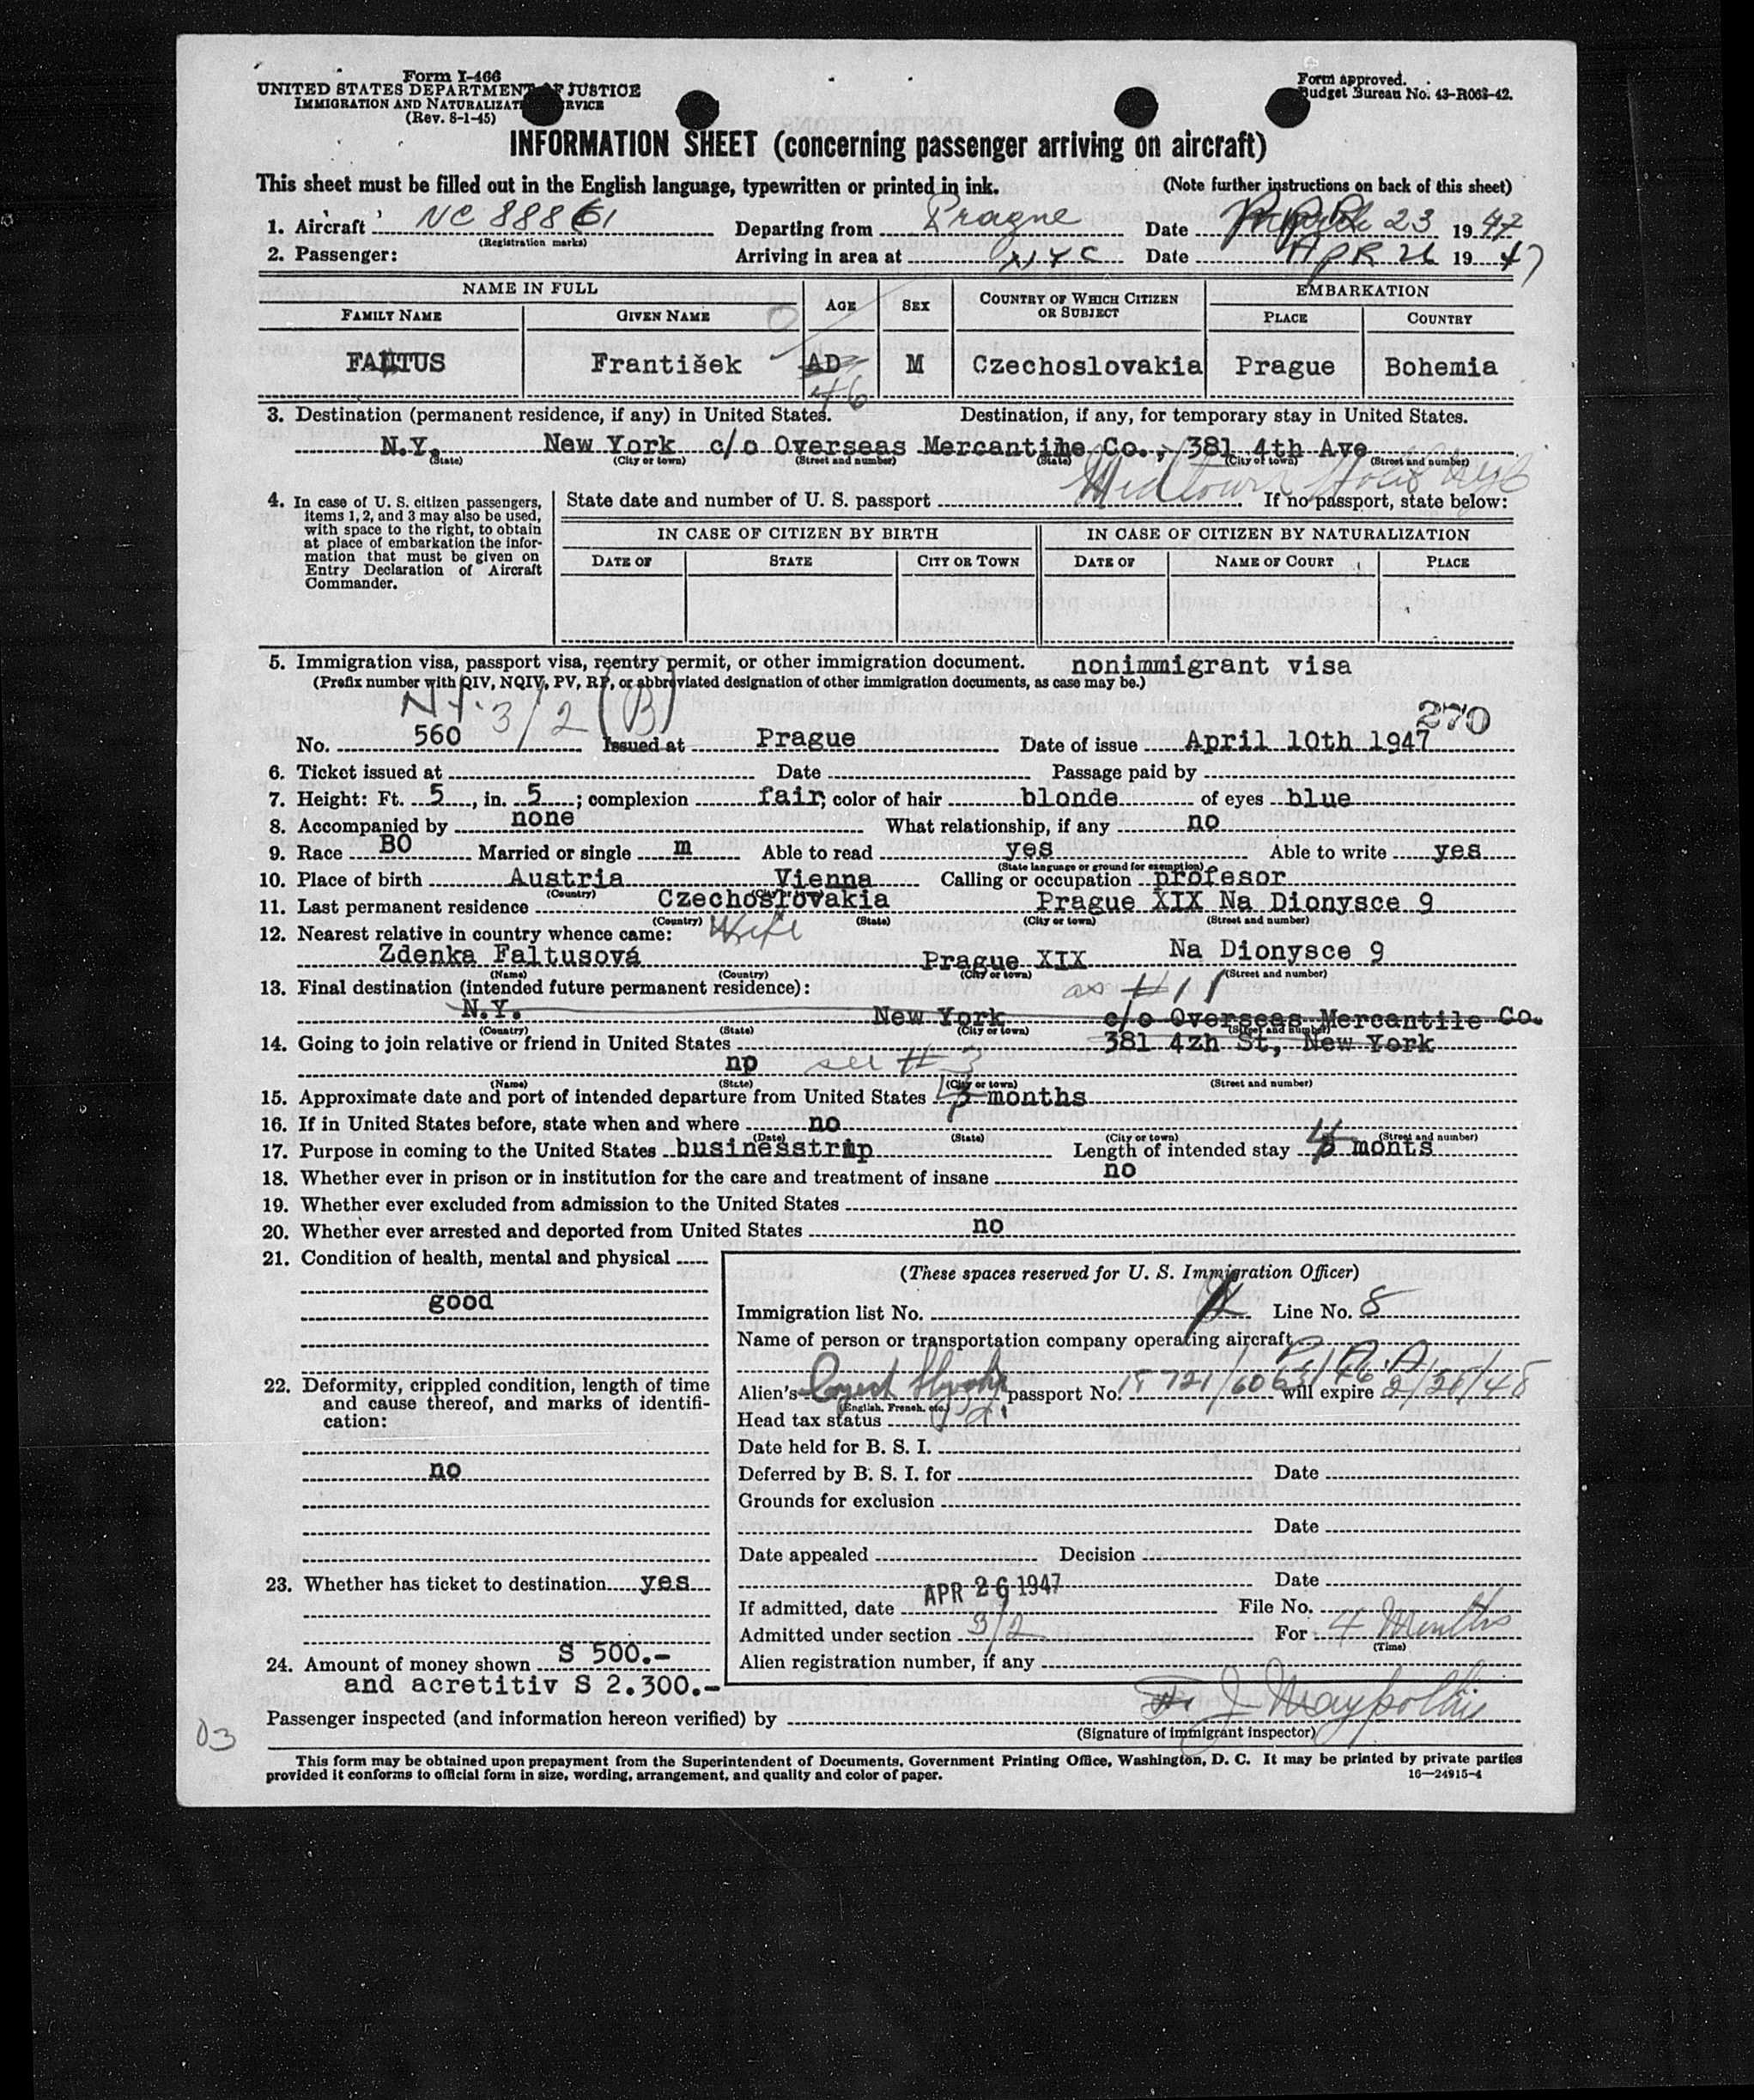 Form I-466
UNITED STATES DEPARTMENT OF JUSTICE
IMMIGRATION AND NATURALIZATION SERVICE
(Rev. 8-1-45)
Form approved.
Budget Bureau No. 43-R063-42.
INFORMATION SHEET (concerning passenger arriving on aircraft)
This sheet must be filled out in the English language, typewritten or printed in ink. (Note further instructions on back of this sheet)
1. Aircraft NC 88861 Departing from Prague Date 23 1947
(Registration marks)
2. Passenger: Arriving in area at NYC Date APR 26 1947
NAME IN FULL AGE SEX COUNTRY OF WHICH CITIZEN OR SUBJECT EMBARKATION
FAMILY NAME GIVEN NAME PLACE COUNTRY
FALTUS František AD M Czechoslovakia Prague Bohemia
46
3. Destination (permanent residence, if any) in United States. Destination, if any, for temporary stay in United States.
N.Y. New York c/o Overseas Mercantine Co., 381 4th Ave
(State) (City or town) (Street and number) (State) (City or town) (Street and number)
Midtown
4. In case of U. S. citizen passengers, items 1, 2, and 3 may also be used, with space to the right, to obtain at place of embarkation the information that must be given on Entry Declaration of Aircraft Commander.
State date and number of U. S. passport If no passport, state below:
IN CASE OF CITIZEN BY BIRTH IN CASE OF CITIZEN BY NATURALIZATION
DATE OF STATE CITY OR TOWN DATE OF NAME OF COURT PLACE
5. Immigration visa, passport visa, reentry permit, or other immigration document. nonimmigrant visa
(Prefix number with QIV, NQIV, PV, RP, or abbreviated designation of other immigration documents, as case may be.)
3/2 (B) 270
No. 560 Issued at Prague Date of issue April 10th 1947
6. Ticket issued at Date Passage paid by
7. Height: Ft. 5, in. 5; complexion fair; color of hair blonde of eyes blue
8. Accompanied by none What relationship, if any no
9. Race BO Married or single m Able to read yes Able to write yes
(State language or ground for exemption)
10. Place of birth Austria Vienna Calling or occupation profesor
(Country) (City or town)
11. Last permanent residence Czechoslovakia Prague XIX Na Dionysce 9
(Country) (State) (City or town) (Street and number)
12. Nearest relative in country whence came: Wife
Zdenka Faltusová Prague XIX Na Dionysce 9
(Name) (Country) (City or town) (Street and number)
13. Final destination (intended future permanent residence): as #11
N.Y. New York c/o Overseas Mercantile Co.
(Country) (State) (City or town) (Street and number)
14. Going to join relative or friend in United States 381 4zh St, New York
no see #3
(Name) (State) (City or town) (Street and number)
15. Approximate date and port of intended departure from United States months
16. If in United States before, state when and where no
(Date) (State) (City or town) (Street and number)
17. Purpose in coming to the United States businesstrip Length of intended stay 4 monts
18. Whether ever in prison or in institution for the care and treatment of insane no
19. Whether ever excluded from admission to the United States
20. Whether ever arrested and deported from United States no
21. Condition of health, mental and physical
good
22. Deformity, crippled condition, length of time and cause thereof, and marks of identification:
no
23. Whether has ticket to destination yes
24. Amount of money shown S 500.-
and acretitiv S 2.300.-
(These spaces reserved for U. S. Immigration Officer)
Immigration list No. Line No. 8
Name of person or transportation company operating aircraft
P. A. A.
Alien's passport No. 15721/6063/46 will expire 2/26/48
(English, French, etc.)
Head tax status
Date held for B. S. I.
Deferred by B. S. I. for Date
Grounds for exclusion
Date
Date appealed Decision
Date
If admitted, date APR 26 1947 File No.
Admitted under section 3/2 For 4 Months
(Time)
Alien registration number, if any
Passenger inspected (and information hereon verified) by
(Signature of immigrant inspector)
D3
This form may be obtained upon prepayment from the Superintendent of Documents, Government Printing Office, Washington, D. C. It may be printed by private parties
provided it conforms to official form in size, wording, arrangement, and quality and color of paper. 16—24915-4